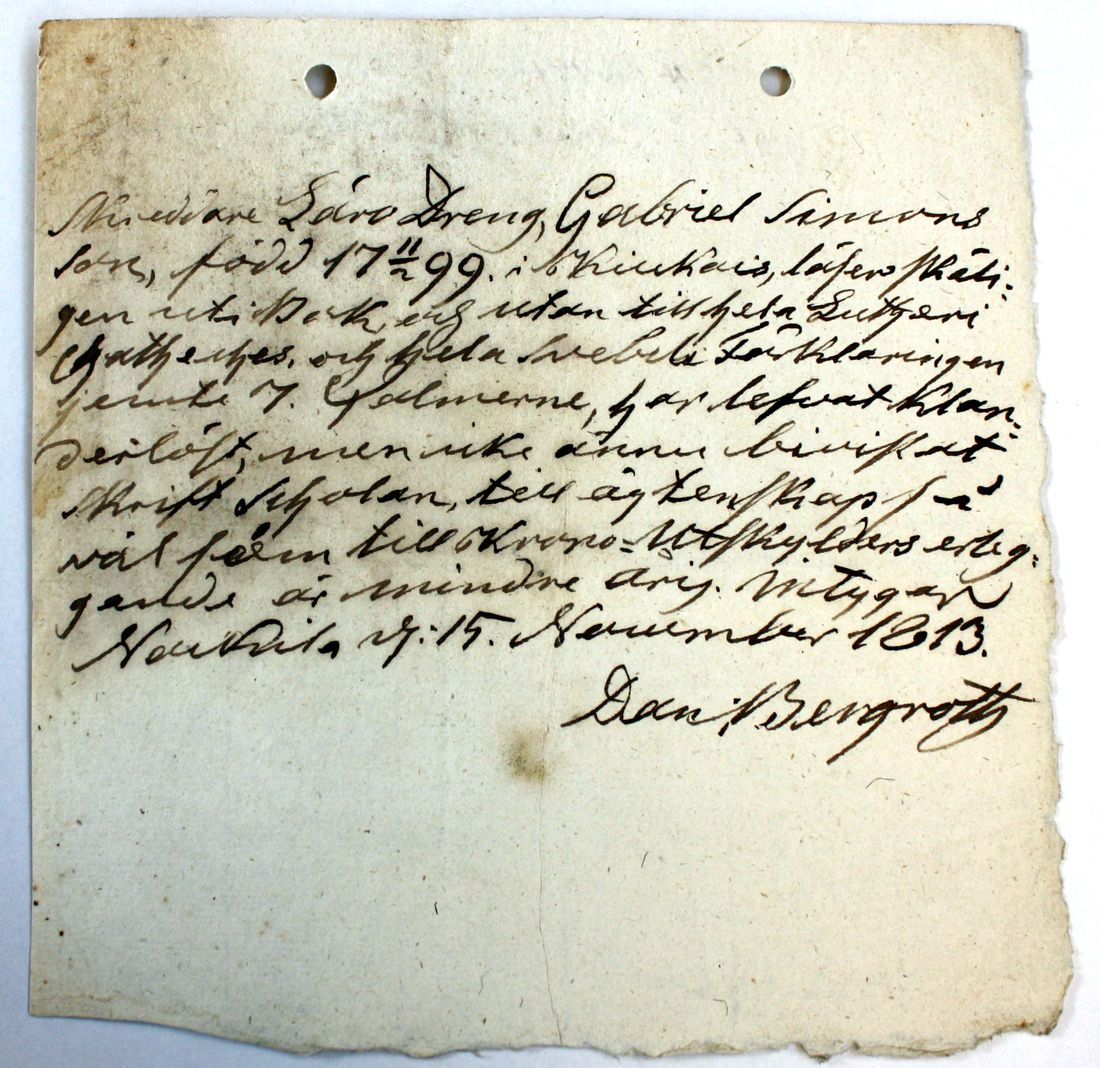 Skreddare Läro Dreng, Gabriel Simons
son, född 17 11/2 99. i Kiukais, läser skäli-
gen uti Bok, och utan till hela Lutheri
Catheches. och hela Svebeli Förklaringen
jemte 7. Psalmerne, har lefvat klan-
derlöst, men icke ännu bivistat
Skrift Scholan, till ägtenskap så
väl som till Krono-Utskylders erleg-
gande är mindre årig. Intygar
Naukila d: 15. November 1813.
Dan: Bergroth